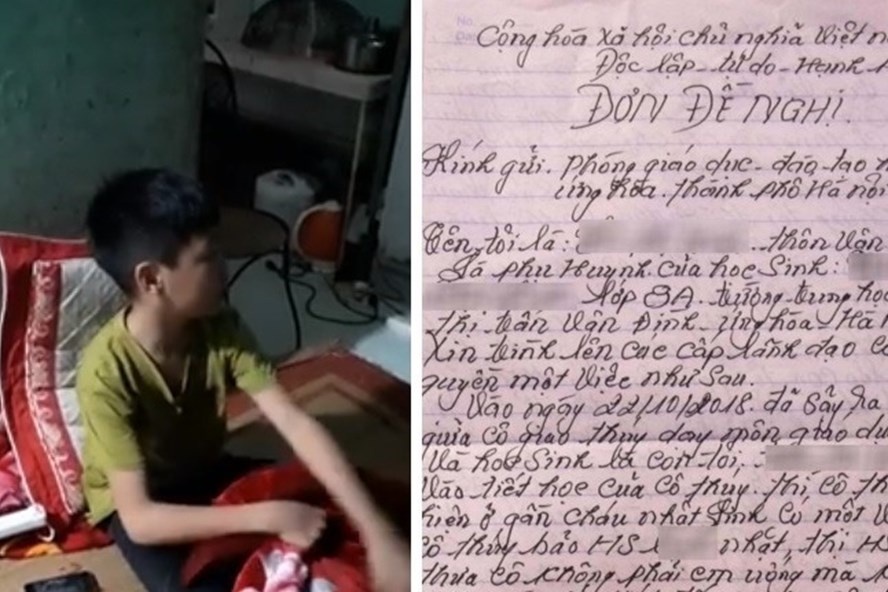 No.
Cộng hòa xã hội chủ nghĩa Việt n
Độc lập - tự do - Hạnh
ĐƠN ĐỀ NGHỊ.
Kính gửi. phòng giáo dục - đào tạo
ứng hòa. thành phố Hà nội
Tên tôi là: thôn Vân
Là phụ Huynh của học Sinh:
lớp 8A. trường trung học
thị trấn Vân Đình - ứng hòa - Hà n
Xin trình lên các cấp lãnh đạo có
quyền một Việc như Sau.
Vào ngày 22/10/2018. đã Sẩy ra
giữa cô giáo thúy dạy môn giáo dục
Và học Sinh là con tôi,
Vào tiết học của cô thúy. thì cô th
hiện ở gần cháu nhất đinh có một v
cô thúy bảo HS nhặt, thì H
thưa cô không phải em uống mà